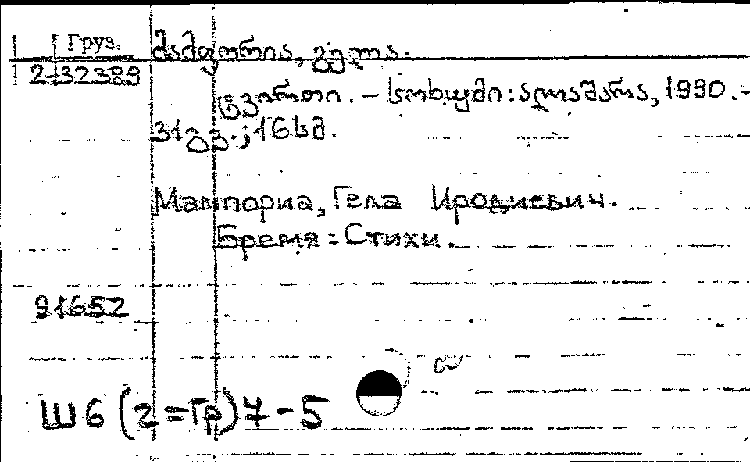 Груз.
მამფორია, გელა.
2132389
ტვირთი. – სოხუმი: ალაშარა, 1990. –
31 გვ.; 16 სმ.
Мампориа, Гела Иродиевич.
Бремя: Стихи.
91652
Ш6(2=Гр)7-5